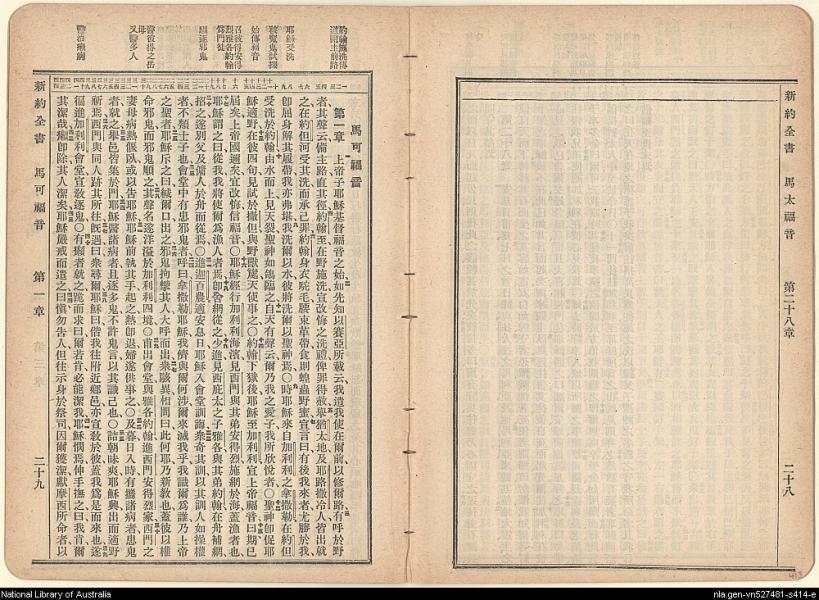 新約全書 馬太福音 第二十八章 二十八
約翰施洗傳
道開主前路
耶穌受洗
被魔鬼試探
始傳福音
召彼得安得
烈雅各約翰
為門徒
逐邪鬼
醫彼得之岳
母
又醫多人
醫治癩病
馬可福音
第一章 上帝子耶穌基督福音之始如先知以賽亞所載云我遣我使在爾前以修爾路有呼於野
者其聲云備主路直其徑約翰至在野施洗宣改悔之洗禮俾罪得赦舉猶太地及耶路撒冷人皆出就
之在約但河受其洗而承己罪約翰身衣駝毛腰束革帶食則蝗蟲野蜜宣言曰有後我來者尤勝於我
卽屈身解其履帶我亦弗堪我洗爾以水彼將洗爾以聖神焉○時耶穌來自加利利之拿撒勒在約但
受洗於約翰由水而上見天裂聖神如鴿臨之自天有聲云爾乃我之愛子我所欣悅者○聖神卽促耶
穌適野在彼四旬見試於撒但與野獸處天使事之○約翰下獄後耶穌至加利利宣上帝福音曰期已
屆矣上帝國邇矣宜改悔信福音○耶穌經行加利利海濱見西門與其弟安得烈施網於海蓋漁者也
耶穌謂之曰從我我將使爾為漁人者焉卽舍網從之少進見西庇太之子雅各與其弟約翰在舟補網
招之遂別父及傭人於舟而從焉○進迦百農適安息日耶穌入會堂訓誨衆奇其訓以其訓人如操權
者不類士子也會堂中有患邪鬼者呼曰拿撒勒耶穌我儕與爾何涉爾來滅我乎我識爾為誰乃上帝
之聖者耶穌斥之曰緘爾口出之邪鬼拘攣其人大呼而出衆駭異相問曰此何耶乃新教也蓋彼以權
命邪鬼而邪鬼順之其聲名遂洋溢於加利利四境○甫出會堂與雅各約翰進西門安得烈家西門之
妻母病熱偃臥或以告耶穌耶穌前執其手起之熱卽退婦遂供事之○及暮日入時有攜諸病者患鬼
者就之舉邑皆集於門耶穌醫諸病者且逐多鬼不許鬼言以其識己也○詰朝昧爽耶穌興出而適野
祈焉西門與同人跡其所往旣遇曰衆尋爾耶穌曰偕我往附近鄉邑亦宣敎於彼蓋我為是而來也遂
徧進加利利會堂宣敎逐鬼○有癩者就之跪而求曰爾若肯必能潔我耶穌憫焉伸手撫之曰我肯爾
其潔哉癩卽除其人潔矣耶穌嚴戒而遣之曰愼勿告人但往示身於祭司因爾獲潔獻摩西所命者以
新約全書 馬可福音 第一章 二十九
413
National Library of Australia
nla.gen-vn527481-s414-e